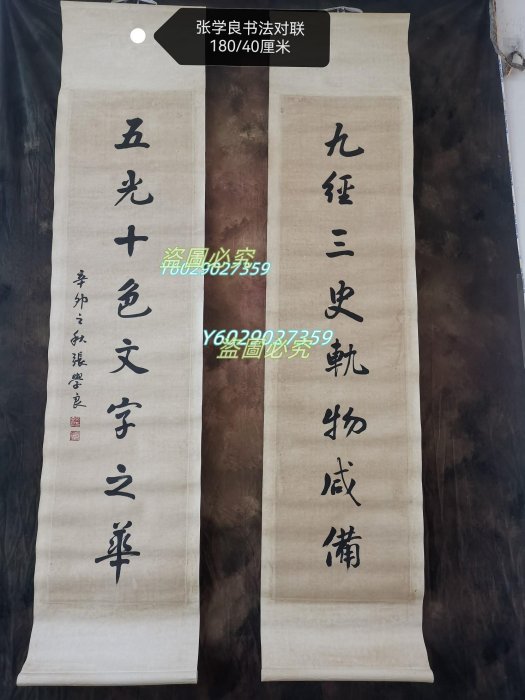 张学良书法对联
180/40厘米
九經三史軌物咸備
五光十色文字之華
辛卯之秋張學良
盜圖必究
Y6029027359
Y6029027359
盜圖必究